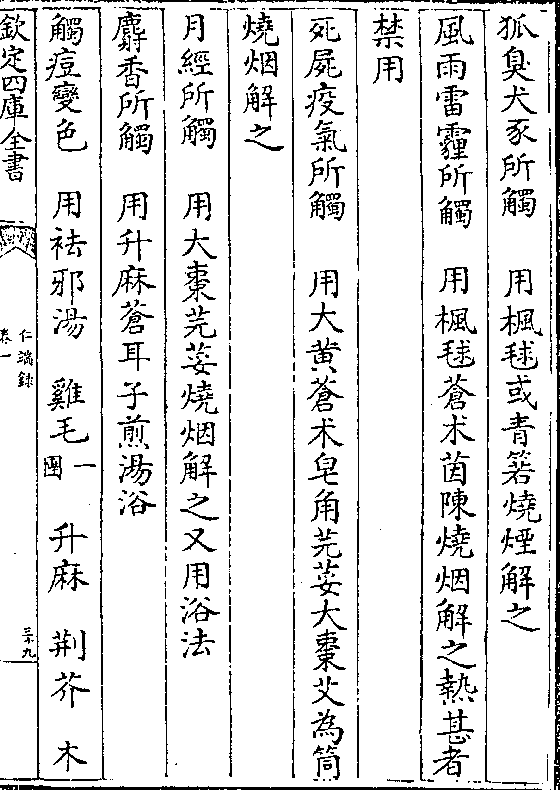 狐臭犬豕所觸　用楓毬或青箬燒煙解之
風雨雷霾所觸　用楓毬蒼术茵陳燒烟解之熱甚者
禁用
死屍疫氣所觸　用大黄蒼术皂角芫荽大棗艾為筒
燒烟解之
月經所觸　用大棗芫荽燒烟解之又用浴法
麝香所觸　用升麻蒼耳子煎湯浴
觸痘變色　用祛邪湯　雞毛一團　升麻　荆芥　木
欽定四庫全書
仁端錄
卷一
三十九